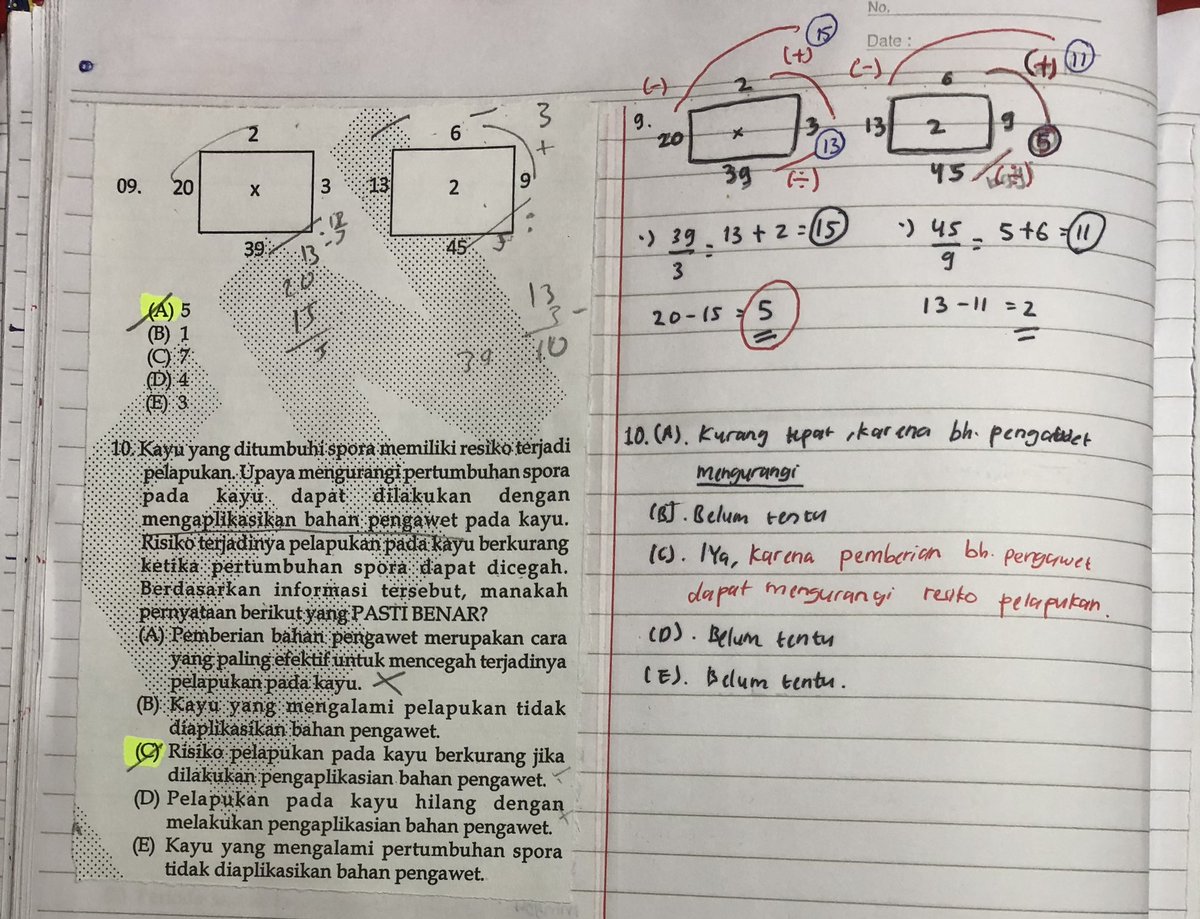 No.
Date :
09.
2
20
x
3
39
6
13
2
9
45
3
+
13
20
15
5
39
13
3 -
10
(A) 5
(B) 1
(C) 7
(D) 4
(E) 3
10. Kayu yang ditumbuhi spora memiliki resiko terjadi
pelapukan. Upaya mengurangi pertumbuhan spora
pada kayu dapat dilakukan dengan
mengaplikasikan bahan pengawet pada kayu.
Risiko terjadinya pelapukan pada kayu berkurang
ketika pertumbuhan spora dapat dicegah.
Berdasarkan informasi tersebut, manakah
pernyataan berikut yang PASTI BENAR?
(A) Pemberian bahan pengawet merupakan cara
yang paling efektif untuk mencegah terjadinya
pelapukan pada kayu.
(B) Kayu yang mengalami pelapukan tidak
diaplikasikan bahan pengawet.
(C) Risiko pelapukan pada kayu berkurang jika
dilakukan pengaplikasian bahan pengawet.
(D) Pelapukan pada kayu hilang dengan
melakukan pengaplikasian bahan pengawet.
(E) Kayu yang mengalami pertumbuhan spora
tidak diaplikasikan bahan pengawet.
9.
(-)
15
(+)
2
20
x
3
13
39
(÷)
(-)
(+)
11
6
13
2
9
5
45
(÷)
·) 39/3 = 13 + 2 = 15
20 - 15 = 5
·) 45/9 = 5+6 = 11
13 - 11 = 2
10. (A). Kurang tepat, karena bh. pengawet
mengurangi
(B). Belum tentu
(C). Iya, karena pemberian bh. pengawet
dapat mengurangi resiko pelapukan.
(D). Belum tentu
(E). Belum tentu.